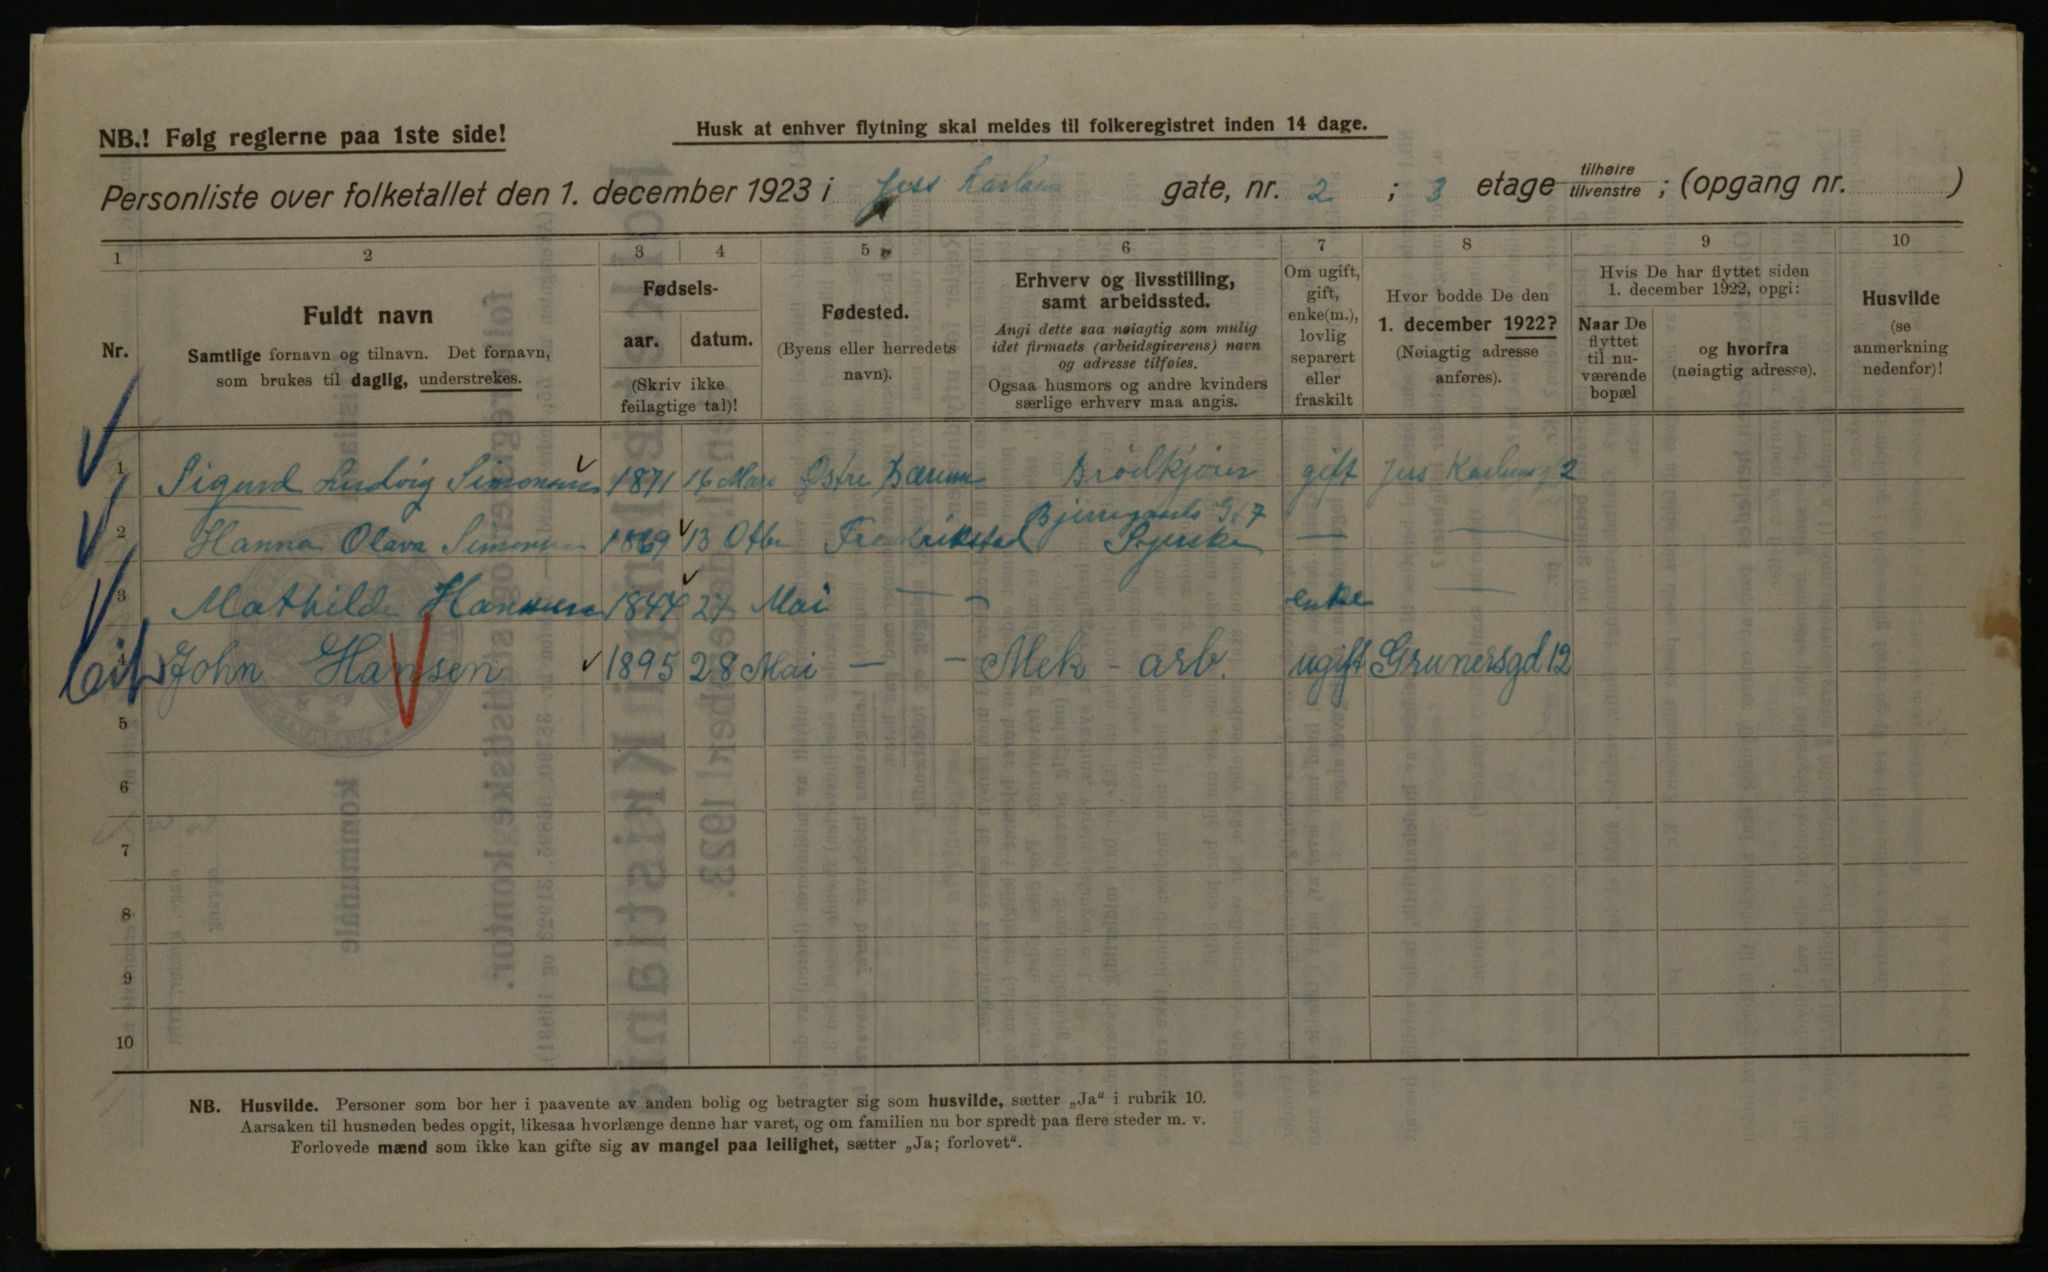 NB.! Følg reglerne paa 1ste side!
Husk at enhver flytning skal meldes til folkeregistret inden 14 dage.
Personliste over folketallet den 1. december 1923 i Jess Karlsens gate, nr. 2 ; 3 etage tilhøire tilvenstre ; (opgang nr. )
1 2 3 4 5 6 7 8 9 10
Nr.
Fuldt navn
Samtlige fornavn og tilnavn. Det fornavn,
som brukes til daglig, understrekes.
Fødsels-
aar. datum.
(Skriv ikke
feilagtige tal)!
Fødested.
(Byens eller herredets
navn).
Erhverv og livsstilling,
samt arbeidssted.
Angi dette saa nøiagtig som mulig
idet firmaets (arbeidsgiverens) navn
og adresse tilføies.
Ogsaa husmors og andre kvinders
særlige erhverv maa angis.
Om ugift,
gift,
enke(m.),
lovlig
separert
eller
fraskilt
Hvor bodde De den
1. december 1922?
(Nøiagtig adresse
anføres).
Hvis De har flyttet siden
1. december 1922, opgi:
Naar De
flyttet
til nu-
værende
bopæl
og hvorfra
(nøiagtig adresse).
Husvilde
(se
anmerkning
nedenfor)!
1 Sigurd Ludvig Simonsen 1871 16 Mars Østre Bærum Brödkjörer gift Jess Karlsens gt 2
Bjerregaards Gt 7
2 Hanna Olava Simonsen 1869 13 Otbr Fredrikstad — —
3 Mathilde Hansen 1844 27 Mai — - enke —
4 John Hansen 1895 28 Mai — - Mek - arb. ugift Grunersgd 12
5
6
7
8
9
10
NB. Husvilde. Personer som bor her i paavente av anden bolig og betragter sig som husvilde, sætter „Ja" i rubrik 10.
Aarsaken til husnøden bedes opgit, likesaa hvorlænge denne har varet, og om familien nu bor spredt paa flere steder m. v.
Forlovede mænd som ikke kan gifte sig av mangel paa leilighet, sætter „Ja; forlovet".